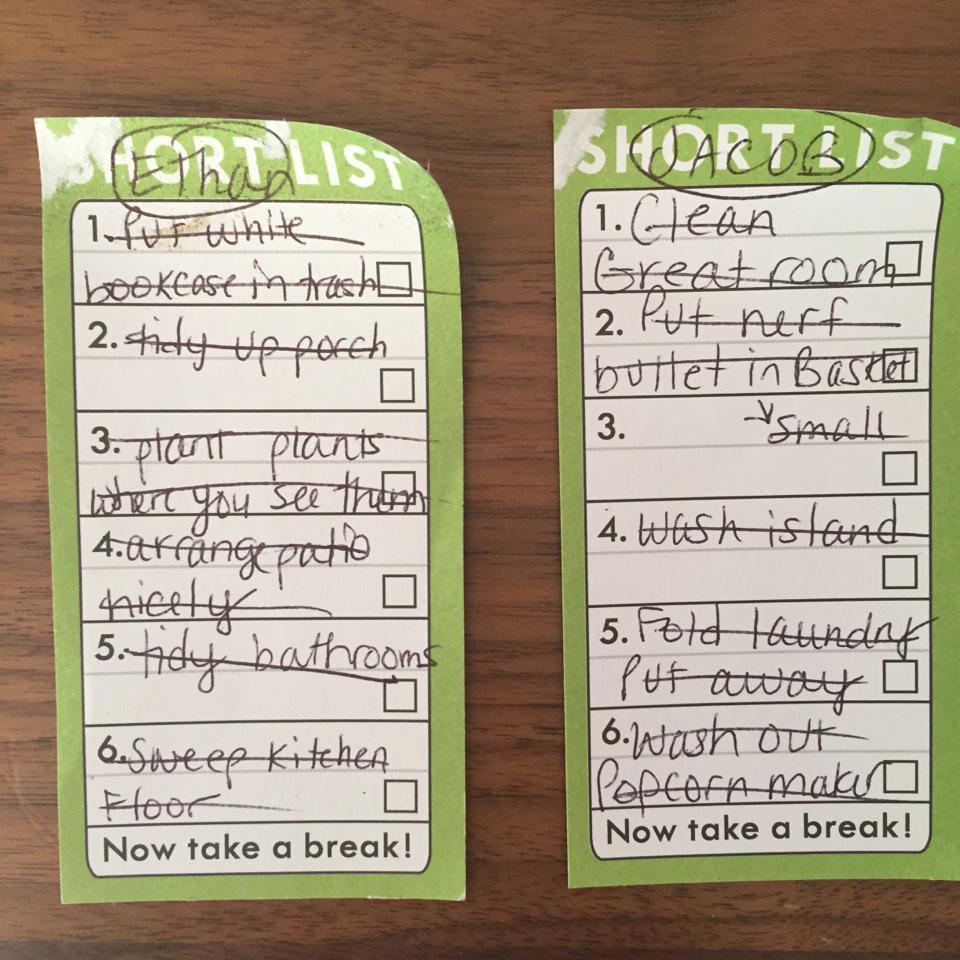 SHORT LIST
Ethan
1. Put white
bookcase in trash
2. tidy up porch
3. plant plants
where you see them
4. arrange patio
nicely
5. tidy bathrooms
6. Sweep Kitchen
Floor
Now take a break!
SHORT LIST
JACOB
1. Clean
Great room
2. Put nerf
bullet in Basket
3. small
4. Wash island
5. Fold laundry
Put away
6. Wash out
Popcorn maker
Now take a break!